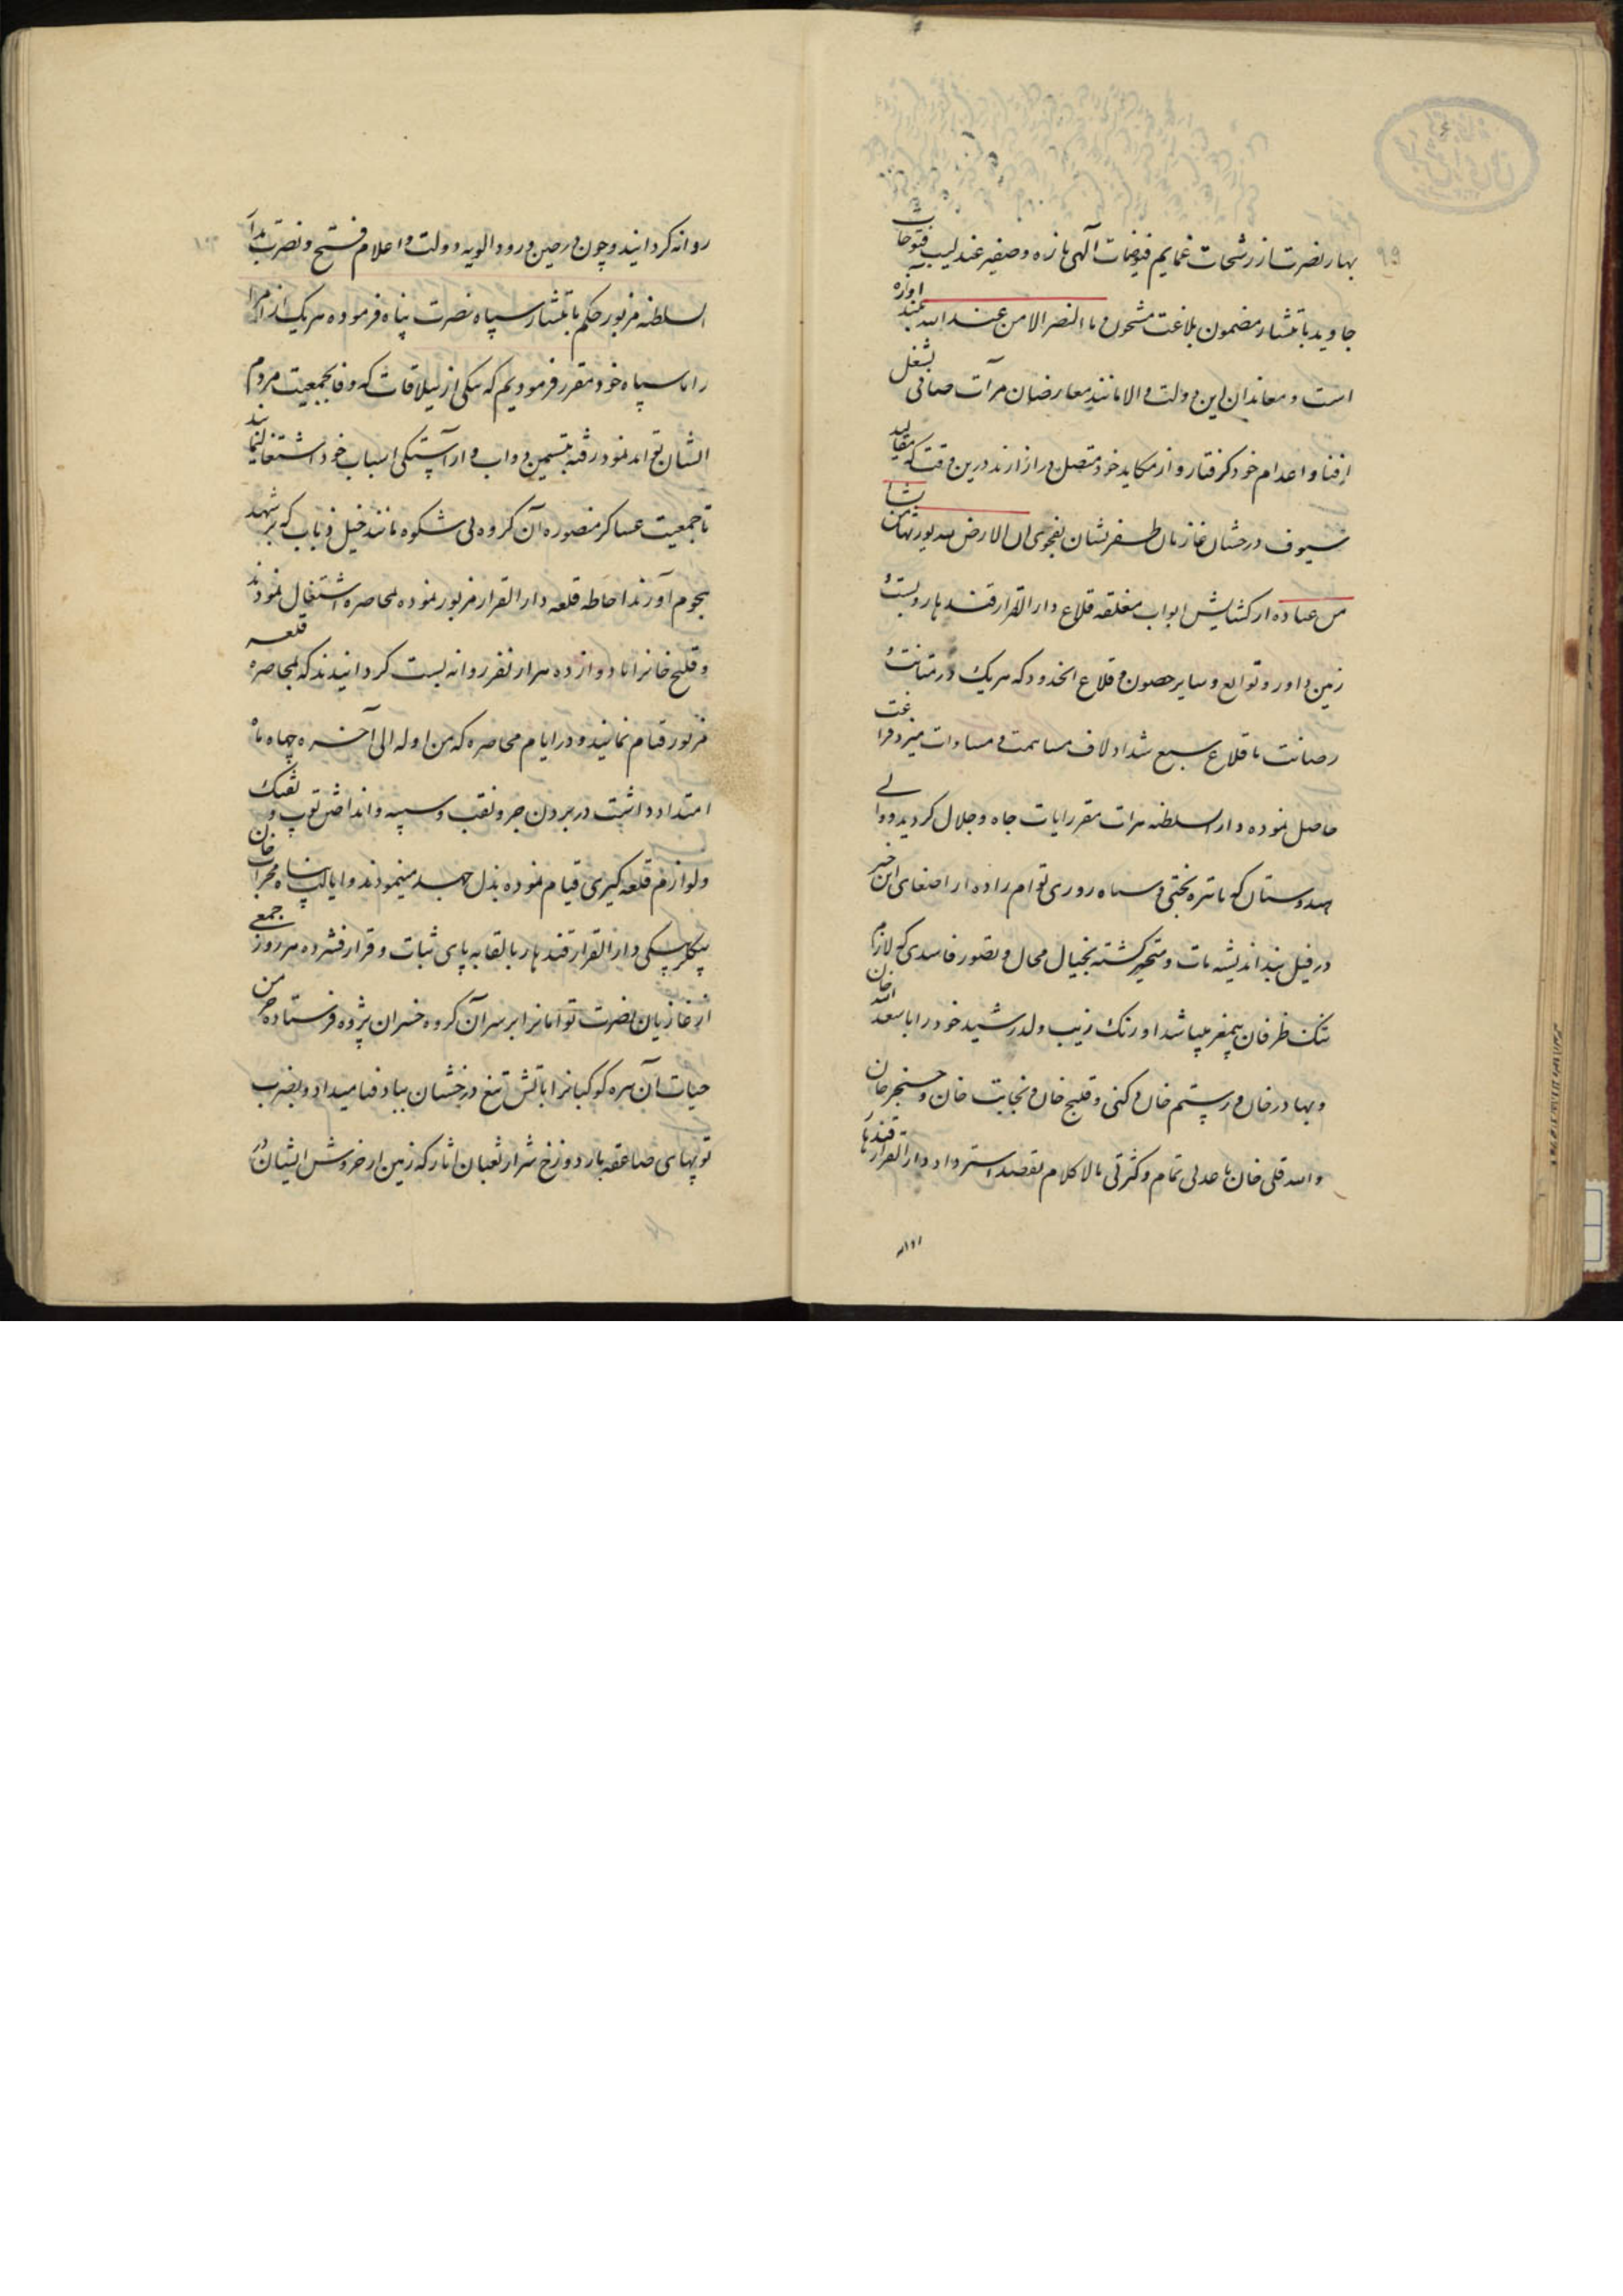 ۹۹
بهار نصرت از رشحات غمایم فیوضات آلهی تازه و صفیر عندلیب فتوحات
جاوید بانتشار مضمون بلاغت مشحون و ما النصر الا من عند الله بلند آوازه
است و معاندان این دولت والا مانند معارضان مرآت صافی بشغل
افنا و اعدام خود گرفتار و از مکاید خود متصل در ازارند درین وقت که مقالید
سیوف درخشان غازیان ظفر نشان بفحوی ان الارض لله یورثها من یشا
من عباده از کشایش ابواب مغلقه قلاع دار القرار قندهار و بست و
زمین داور و توابع و سایر حصون و قلاع انحدود که هریک در متانت و
رصانت با قلاع سبع شداد لاف مساهمت و مساوات میزد فراغت
حاصل نموده دار السلطنه هرات مقر رایات جاه و جلال گردید و والی
هندوستان که با تیره بختی و سیاه روزی توام زاده از اصغای این خبر
در فیل بند اندیشه مات و متحیر گشته بخیال محال و تصور فاسدی که لازم
تنک ظرفان بیمغز میباشد اورنک زیب ولد رشید خود را با سعد الله خان
و بهادر خان و رستم خان دکنی و قلیچ خان و نجابت خان و سنجر خان
و الله قلی خان با عدتی تمام و کثرتی مالا کلام بقصد استرداد دار القرار قندهار
روانه
روانه کردانیده و چون در حین ورود الویه دولت و اعلام فتح و نصرت بدار
السلطنه مزبور حکم بانتشار سپاه نصرت پناه فرموده هریک از امرا
را با سپاه خود مقرر فرمودیم که بیکی از ییلاقات که وفا بجمعیت مردم
ایشان تواند نمود رفته بتسمین دواب و آراستگی اسباب خود اشتغال نمایند
تا جمعیت عساکر منصوره آن گروه بی شکوه مانند خیل ذباب که بر شهد
هجوم آورند احاطه قلعه دار القرار مزبور نموده بمحاصره اشتغال نمودند
و قلیچ خانرا با دوازده هزار نفر روانه بست کردانیدند که بمحاصره قلعه
مزبور قیام نمایند و در ایام محاصره که من اوله الی آخره چهار ماه
امتداد داشت در بردن جر و نقب و سیبه و انداختن توپ و تفنک
و لوازم قلعه گیری قیام نموده بذل جهد مینمودند و ایالت پناه محراب خان
بیکلربیکی دار القرار قندهار بالقابه پای ثبات و قرار فشرده هر روز جمعی
از غازیان نصرت توامانرا بر سر آن گروه خسران پژوه فرستاده خرمن
حیات آن سره کوکبانرا باتش تیغ درخشان بباد فنا میداد و بضرب
توپهای صاعقه بار دوزخ شرار ثعبان اثار که زمین از خروش ایشان در